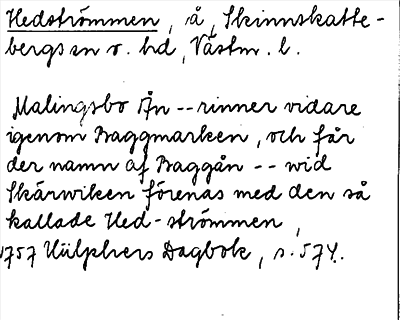 Hedströmmen, å, Skinnskatte-
bergs sn o. hd, Västm. l.
Malingsbo Ån -- rinner vidare
igenom Baggmarken, och får
der namn af Baggån -- wid
Skärwiken förenas med den så
kallade Hed-strömmen,
1757 Hülphers Dagbok, s. 574.